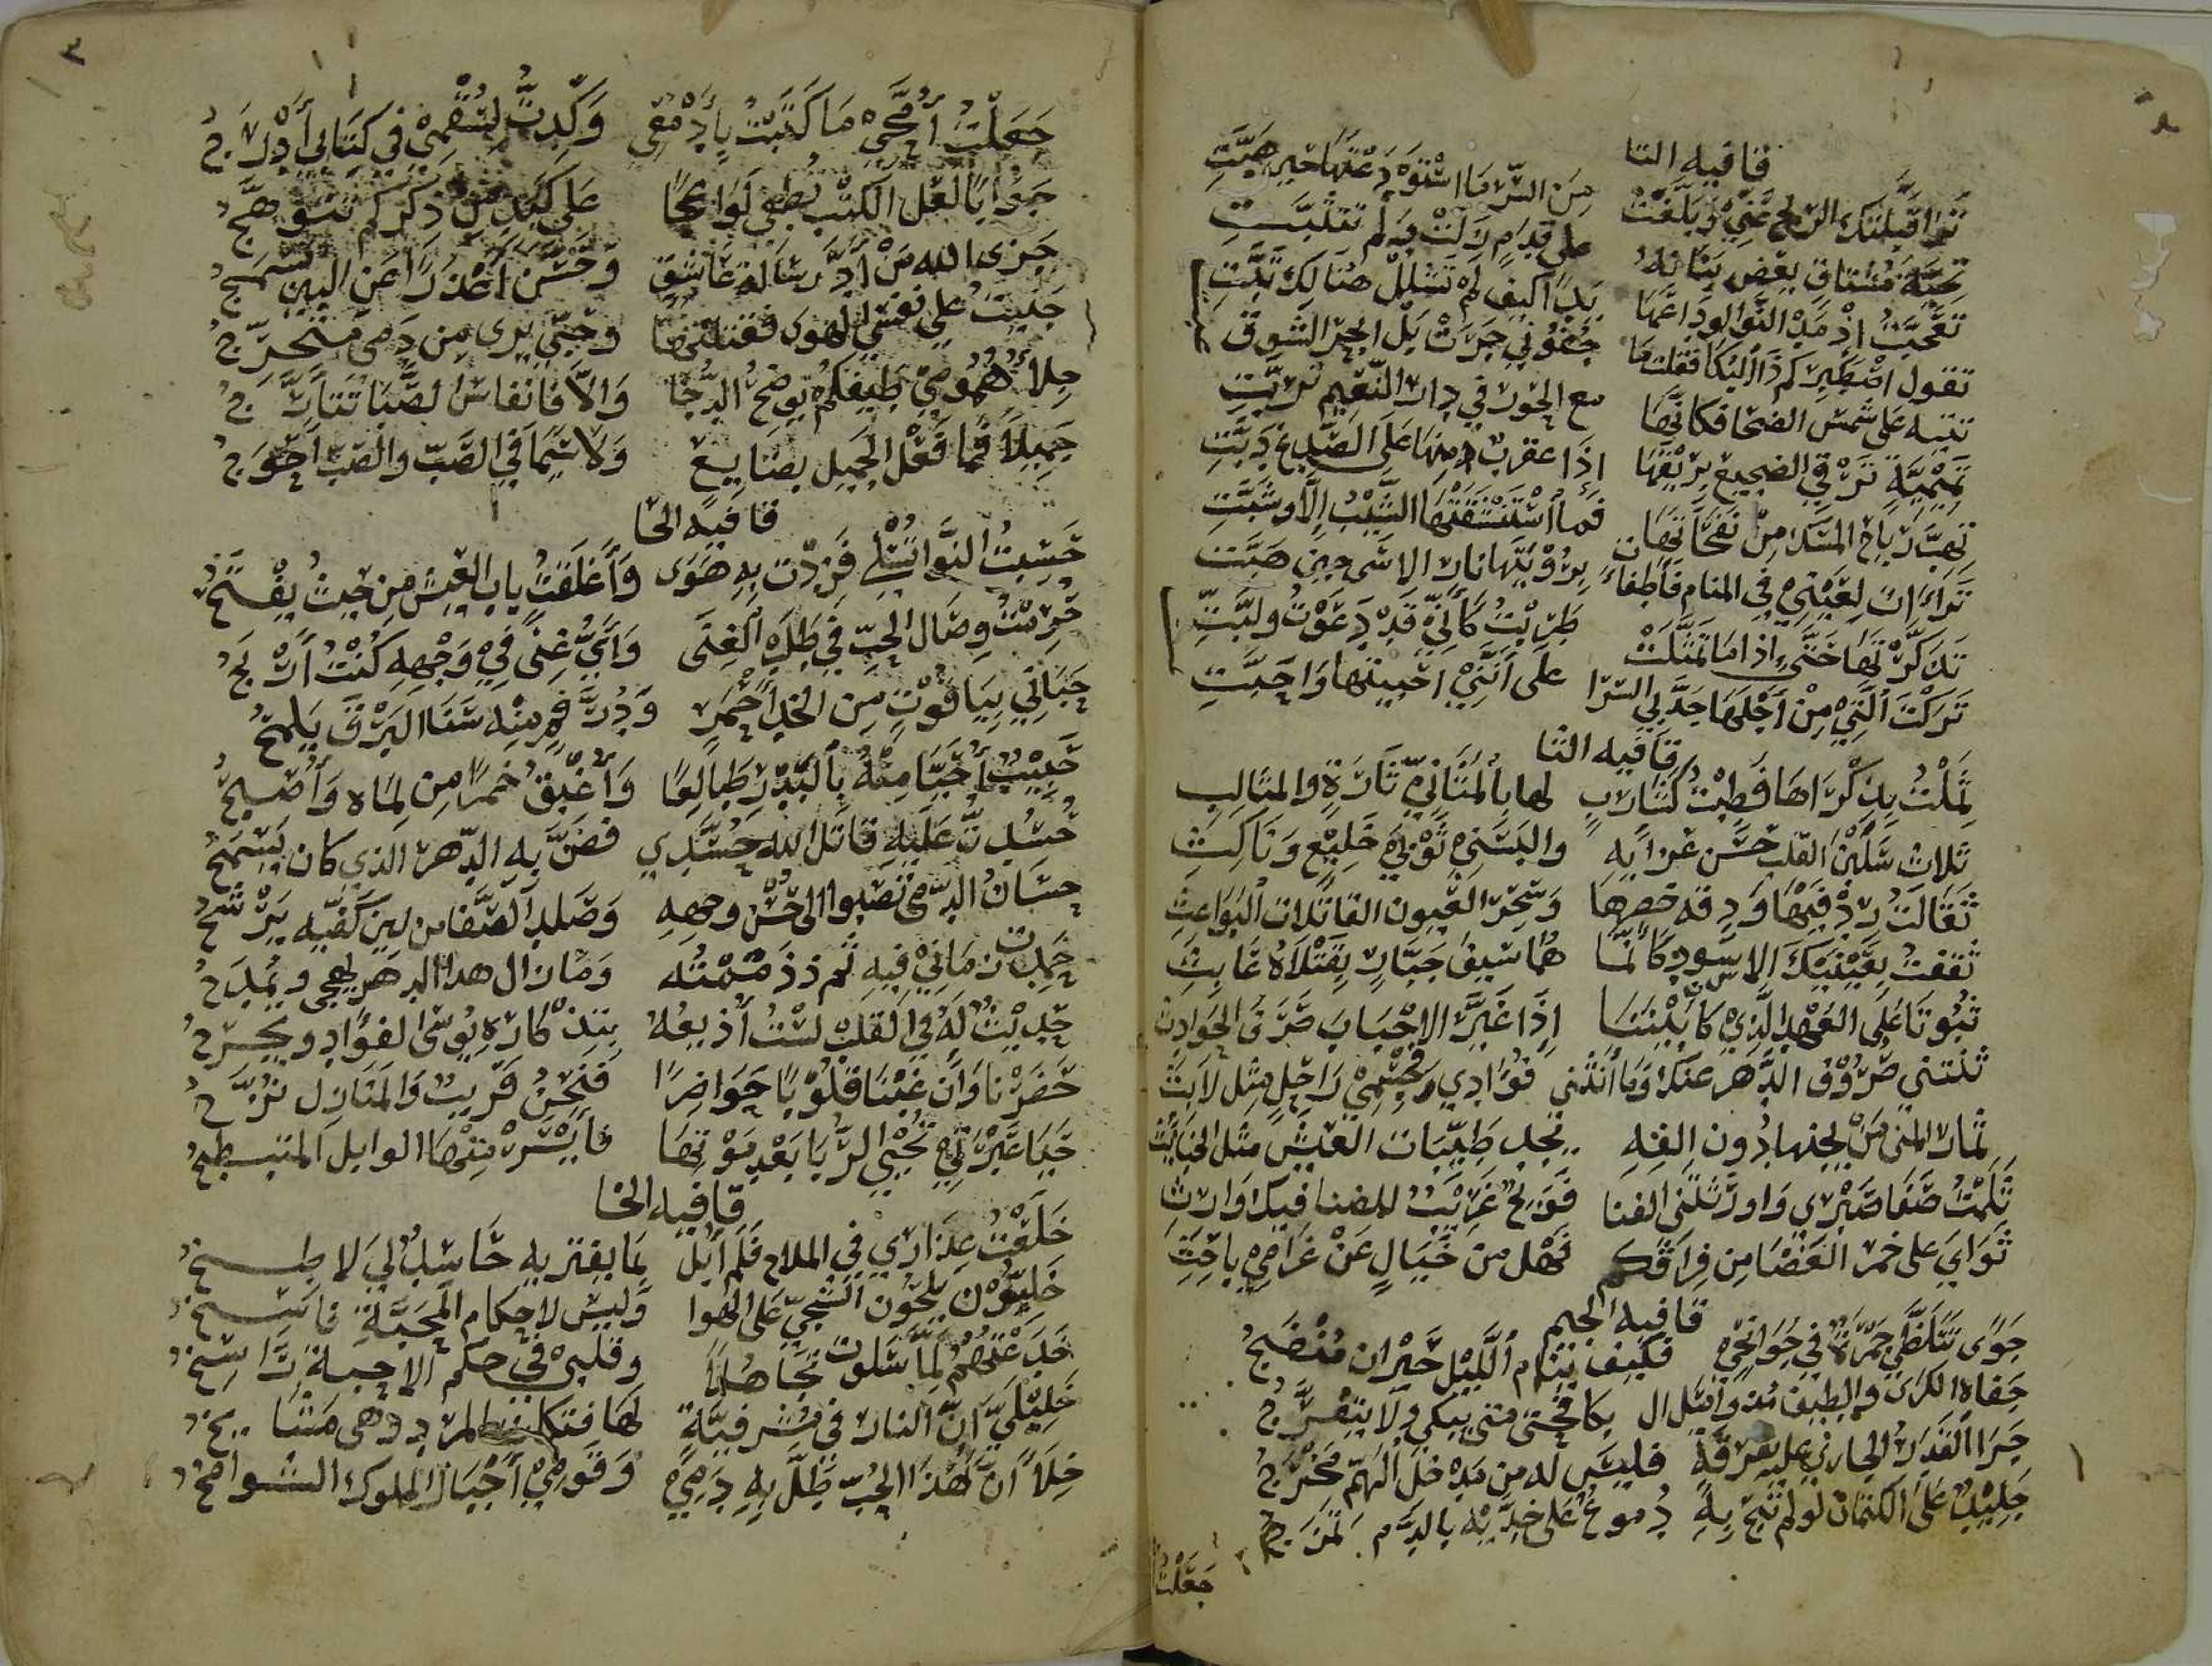 قافيه التا
تراقبلتك الريح عني وبلغت من السر ما استودعتها حين هبت
تحية مشتاق بعض بنانه على قدم زلت به لم تثبت
تعجبت اذ مد النوا لوداعها يدا كيف لم تشلل هنالك تبت
تقول اصطبر كم ذا البكا فقلت ما جفوني جرت بل ابحر الشوق
تتيه على شمس الضحا فكانها مع الحور في دار النعيم تربت
تميمية ترقي الضجيع بريقها اذا عقرب منها على الصدغ دبت
تهب رياح المسك من نفحاتها فما استنشقتها الشيب الا وشبت
تراات لعيني في المنام فاطفات برؤيتها نار الاسى حين هبت
تذكرتها حتى اذا ما تمثلت طربت كاني قد دعوت ولبت
تركت الكرى من اجلها جد بي السرا على انني احببتها واحبت
قافيه الثا
ثملت بذكراها فطبت كشارب لها بالمثاني تارة والمثالث
ثلاث سلبن القلب حسن عزايه والبسني ثوبي خليع وناكث
ثقالت ردفيها ودقه خصرها وسحر العيون القاتلات البواعث
ثقفت بعينيك الاسود كانما هما سيف جبار بقتلاه عابث
ثبوتا على العهد الذي كان بيننا اذا غير الاحباب صرف الحوادث
ثنتني صروف الدهر عنك وما انثنى فؤادي وجسمي راحل مثل لابث
ثمار المنى من يجنها دون الفه يجد طيبات العيش مثل الخبائث
ثلمت صفا صبري واورثتني الفنا فويح غريب للضنا فيك وارث
ثواي على جمر الغضا من فراقكم فهل من خيال عن غرامي باحث
قافيه الجيم
جوى تتلظى جمرة في جوانحي فكيف ينام الليل حيران منضج
جفاه الكرى والطيف مذ وامثال ال بكا فحتى متى يبكي ولا يتفرج
جرا القدر الجاري عليه بفرقة فليس له من مدخل الهم مخرج
جليد على الكتمان لو لم تبح به دموع على خديه بالدم تمزج
جعلت
٣
جعلت امحي ما كتبت بادمعي وكدت لسقمي في كتابي ادرج
جوابا لعل الكتب يطفي لواعجا على كبد من ذكركم تتوهج
جزى الله من ادى رسالة عاشق وحسن اعذارا عن البين تسمج
جنيت على نفسي الهوى فقتلتها وحبي برى من دمي متحرج
جلاء همومي طيفكم يوضح الدجا والا فانفاس الصبا تتارج
جميلا فما فعل الجميل بضايع ولا سيما في الصب والصب احوج
قافيه الحا
حسبت النوا تسلي فزدت به هوى واغلقت باب العيش من حيث يفتح
حرمت وصال الحب في طلب الغنى واي غنى في وجهه كنت اربح
حباني بياقوت من الخد احمر ودر فم منه سنا البرق يلمح
حبيب احيا منه بالبدر طالعا واغبق خمرا من لماه واصبح
حسدت عليه قاتل الله حسدي فضن به الدهر الذي كان يسمح
حسان الدمى تصبوا الى حسن وجهه وصلد الصفا من لين كفيه يرشح
حمدت زماني فيه ثم ذممته وما زال هذا الدهر يهجى ويمدح
حديث له في القلب لست اذيعه بتذكاره يوسى الفؤاد ويجرح
حضرنا وان غبنا قلوبا حواضرا فنحن قريب والمنازل نزح
حيا عبرتي تحيي الربا بعد موتها فايسر منها الوابل المتبطح
قافيه الخا
خلعت عذاري في الملاح فلم ابل بما يفتريه حاسد لي لاطخ
خليون يلحون الشجي على الهوا وليس لاحكام المحبة ناسخ
خدعتهم لما سلوت تجاهلا وقلبي في حكم الاحبة راسخ
خليلي ان النار في مشرفية لها فتكات المرد وهي مشايخ
خلا ان هذا الحب ظل به دمي وقومي اجبال الملوك الشوامخ